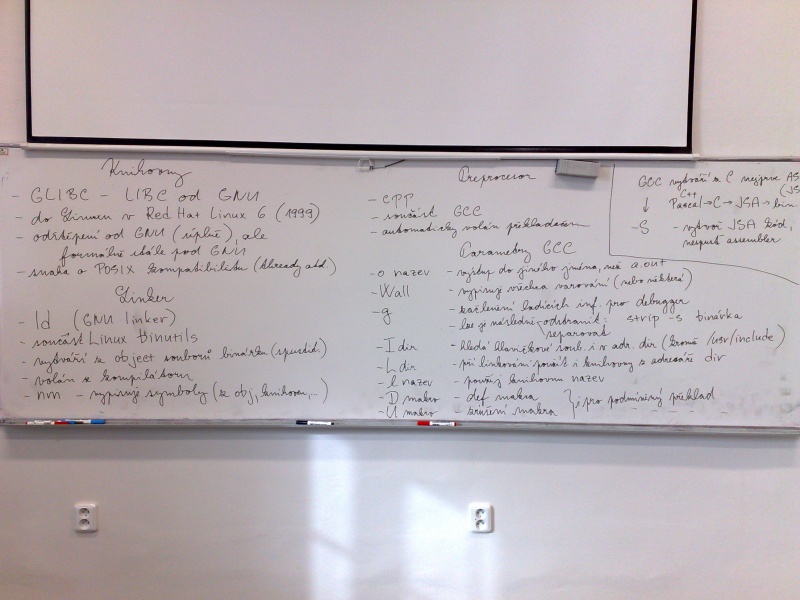 Knihovny
- GLIBC - LIBC od GNU
- do Linuxu v Red Hat Linux 6 (1999)
- odštěpení od GNU (úplné), ale
formálně stále pod GNU
- snaha o POSIX kompatibilitu (threads atd.)
Linker
- ld (GNU linker)
- součást Linux binutils
- vytváří ze object souborů binárku (spustit.)
- volán ze kompilátoru
- nm - vypisuje symboly (z obj, knihoven,...)
Preprocesor
- CPP
- součást GCC
- automaticky volán překladačem
Parametry GCC
-o nazev - výstup do jiného jména, než a.out
-Wall - vypisuje všechna varování (nebo některá)
-g - začlenění ladících inf. pro debugger
- lze je následně odstranit: strip -s binárka
separovat
-I dir - hledá hlavičkové soub. i v adr. dir (kromě /usr/include)
-L dir - při linkování použít i knihovny z adresáře dir
-l nazev - použij knihovnu nazev
-D makro - def makra
-U makro - zrušení makra } pro podmíněný překlad
GCC vytváří z C nejprve
C++
Pascal → C → JSA → bin
-S - vytvoř JSA kód,
nespusť assembler